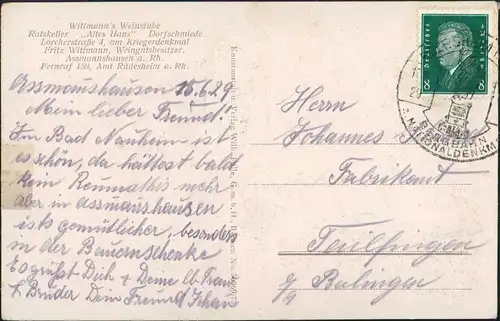 Wittmann's Weinstube
Ratskeller „Altes Haus" Dorfschmiede
Lorcherstraße 4, am Kriegerdenkmal
Fritz Wittmann, Weingutsbesitzer
Assmannshausen a. Rh.
Fernruf 159, Amt Rüdesheim a. Rh.
Assmannshausen 15.6.29
Mein lieber Freund!
Im Bad Nauheim ist
es schön, da hättest bald
kein Reumathis mehr
aber in Assmaushausen
ists gemütlicher, besonders
in der Bauernschenke
Es grüßt Dich + Deine lb. Frau
+ Brüder Dein Freund
Herrn
Johannes
Fabrikant
Tailfingen
Balingen
Deutsches Reich
8 8
NATIONALDENKM